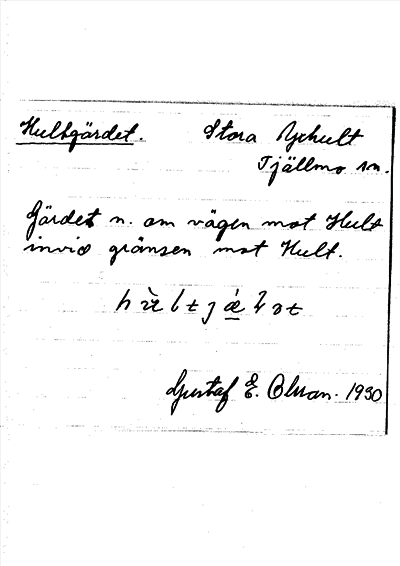 Hultgärdet. Stora
Tjällmo sn.
Gärdet n. om vägen mot Hult
invid gränsen mot Hult.
Gustaf E. Olsson. 1930